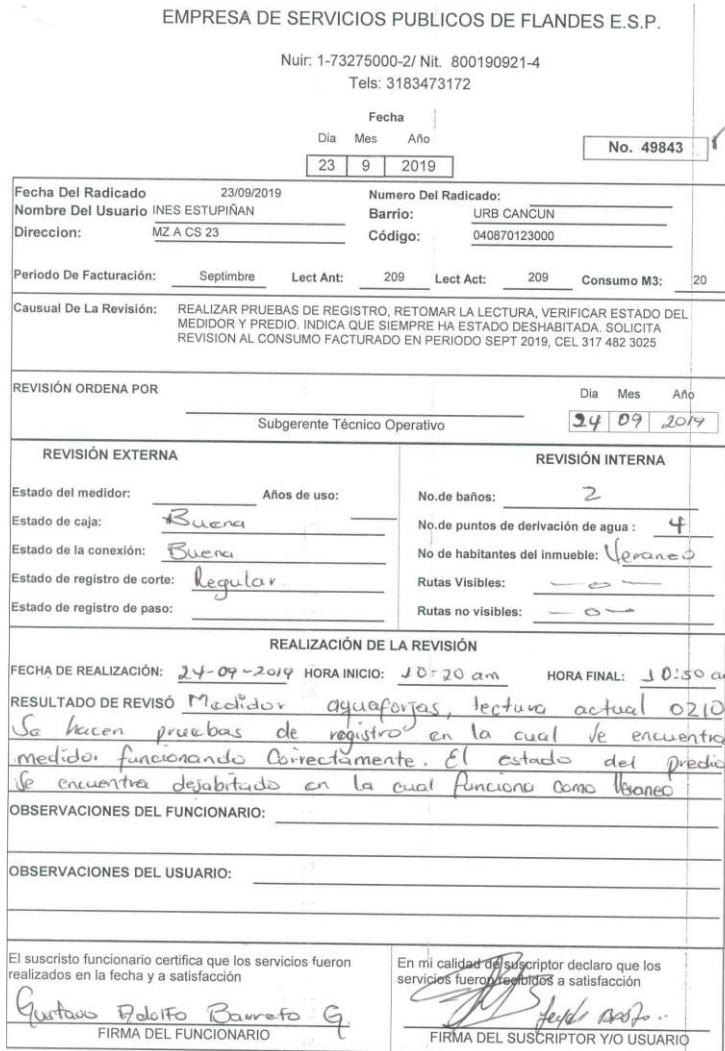 EMPRESA DE SERVICIOS PUBLICOS DE FLANDES E.S.P.
Nuir: 1-73275000-2/ Nit. 800190921-4
Tels: 3183473172
Fecha
Dia Mes Año
23 9 2019
No. 49843
Fecha Del Radicado 23/09/2019 Numero Del Radicado:
Nombre Del Usuario INES ESTUPIÑAN Barrio: URB CANCUN
Direccion: MZ A CS 23 Código: 040870123000
Periodo De Facturación: Septimbre Lect Ant: 209 Lect Act: 209 Consumo M3: 20
Causual De La Revisión: REALIZAR PRUEBAS DE REGISTRO, RETOMAR LA LECTURA, VERIFICAR ESTADO DEL
MEDIDOR Y PREDIO. INDICA QUE SIEMPRE HA ESTADO DESHABITADA. SOLICITA
REVISION AL CONSUMO FACTURADO EN PERIODO SEPT 2019, CEL 317 482 3025
REVISIÓN ORDENA POR
Dia Mes Año
Subgerente Técnico Operativo 24 09 2019
REVISIÓN EXTERNA
Estado del medidor: Años de uso:
Estado de caja: Buena
Estado de la conexión: Buena
Estado de registro de corte: Regular
Estado de registro de paso:
REVISIÓN INTERNA
No.de baños: 2
No.de puntos de derivación de agua : 4
No de habitantes del inmueble: Veraneo
Rutas Visibles: — 0 —
Rutas no visibles: — 0 —
REALIZACIÓN DE LA REVISIÓN
FECHA DE REALIZACIÓN: 24-09-2019 HORA INICIO: 10:20 am HORA FINAL: 10:50 a
RESULTADO DE REVISÓ Medidor aquaforjas, lectura actual 0210
Se hacen pruebas de registro en la cual se encuentra
medidor funcionando Correctamente. El estado del predio
Se encuentra desabitado en la cual funciona como Veraneo
OBSERVACIONES DEL FUNCIONARIO:
OBSERVACIONES DEL USUARIO:
El suscristo funcionario certifica que los servicios fueron
realizados en la fecha y a satisfacción
Gustavo Adolfo Barreto G
FIRMA DEL FUNCIONARIO
En mi calidad de suscriptor declaro que los
servicios fueron recibidos a satisfacción
FIRMA DEL SUSCRIPTOR Y/O USUARIO